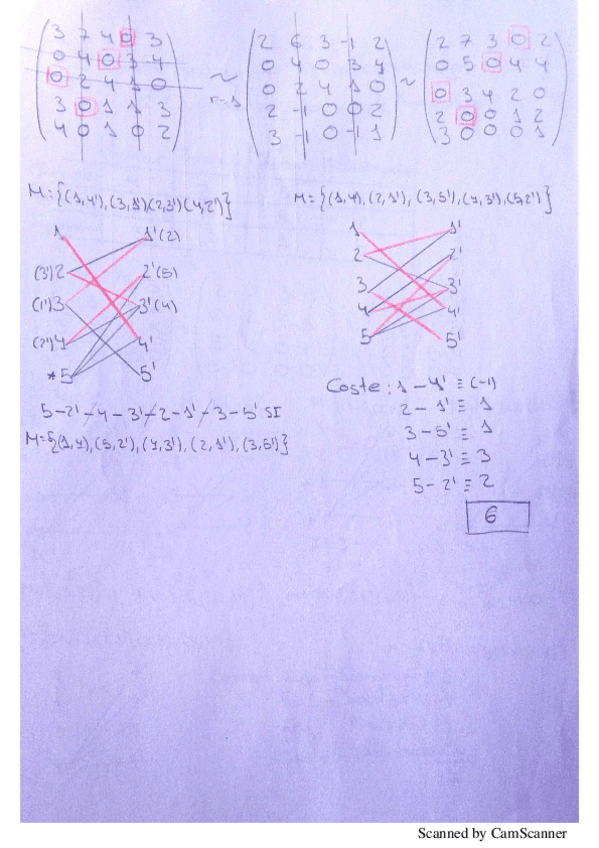 3 7 4 0 3    2 6 3 -1 2    2 7 3 0 2
0 4 0 3 4    0 4 0 3 4    0 5 0 4 4
0 2 4 1 0 ~ r=1 0 2 4 1 0 ~ 0 3 4 2 0
3 0 1 1 3    2 -1 0 0 2    2 0 0 1 2
4 0 1 0 2    3 -1 0 -1 1    3 0 0 0 1
M={(1,4'),(3,1')(2,3')(4,2')}    M={(1,4),(2,1'),(3,5'),(4,3'),(5,2')}
1 1'(2)    1 1'
(3')2 2'(5)    2 2'
(1')3 3'(4)    3 3'
(2')4 4'    4 4'
*5 5'    5 5'
5-2'-4-3'-2-1'-3-5' SI
M={(1,4),(5,2'),(4,3'),(2,1'),(3,5')}
Coste: 1-4' ≡ (-1)
2-1' ≡ 1
3-5' ≡ 1
4-3' ≡ 3
5-2' ≡ 2
6
Scanned by CamScanner